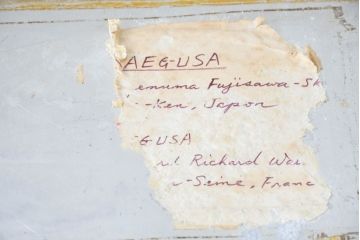 AEG-USA
enuma Fujisawa-Sk
-Ken, Japon
G USA
Richard Wa
-Seine, Franc